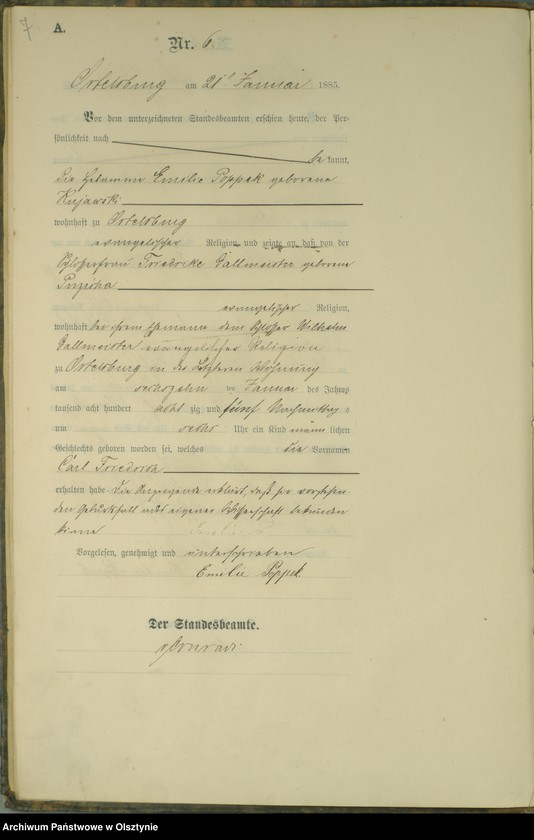 7
A.
Nr. 6
Ortelsburg am 21t Januar 1885.
Vor dem unterzeichneten Standesbeamten erschien heute, der Per-
sönlichkeit nach
be kannt,
die Hebamme Emilie Poppek geborene
Kujawski
wohnhaft zu Ortelsburg
evangelischer Religion, und zeigte an, daß von der
Schlosserfrau Friedrike Dallmeister geborene
evangelischer Religion,
wohnhaft bei ihrem Ehemanne dem Schlosser Wilhelm
Dallmeister evangelischer Religion
zu Ortelsburg in des Letzteren Wohnung
am sechszehn ten Januar des Jahres
tausend acht hundert acht zig und fünf Nachmittags
um sechs Uhr ein Kind männ lichen
Geschlechts geboren worden sei, welches die Vornamen
Carl Friedrich
erhalten habe. Die Anzeigende erklärt, daß sie vorstehen-
den Geburtsfall aus eigener Wissenschaft bekunden
könne
Vorgelesen, genehmigt und unterschrieben
Emilie Poppek.
Der Standesbeamte.
Archiwum Państwowe w Olsztynie